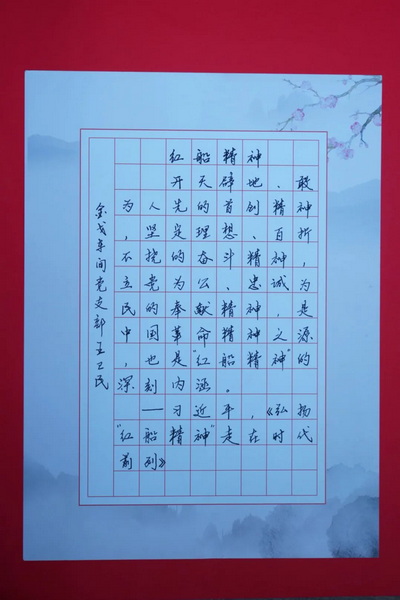 红船精神
开天辟地、敢
为人先的首创精神
，坚定理想、百折
不挠的奋斗精神，
立党为公、忠诚为
民的奉献精神，是
中国革命精神之源
，也是“红船精神”的
深刻内涵。
——习近平，《弘扬
“红船精神”走在时代
前列》
车间党支部王卫民